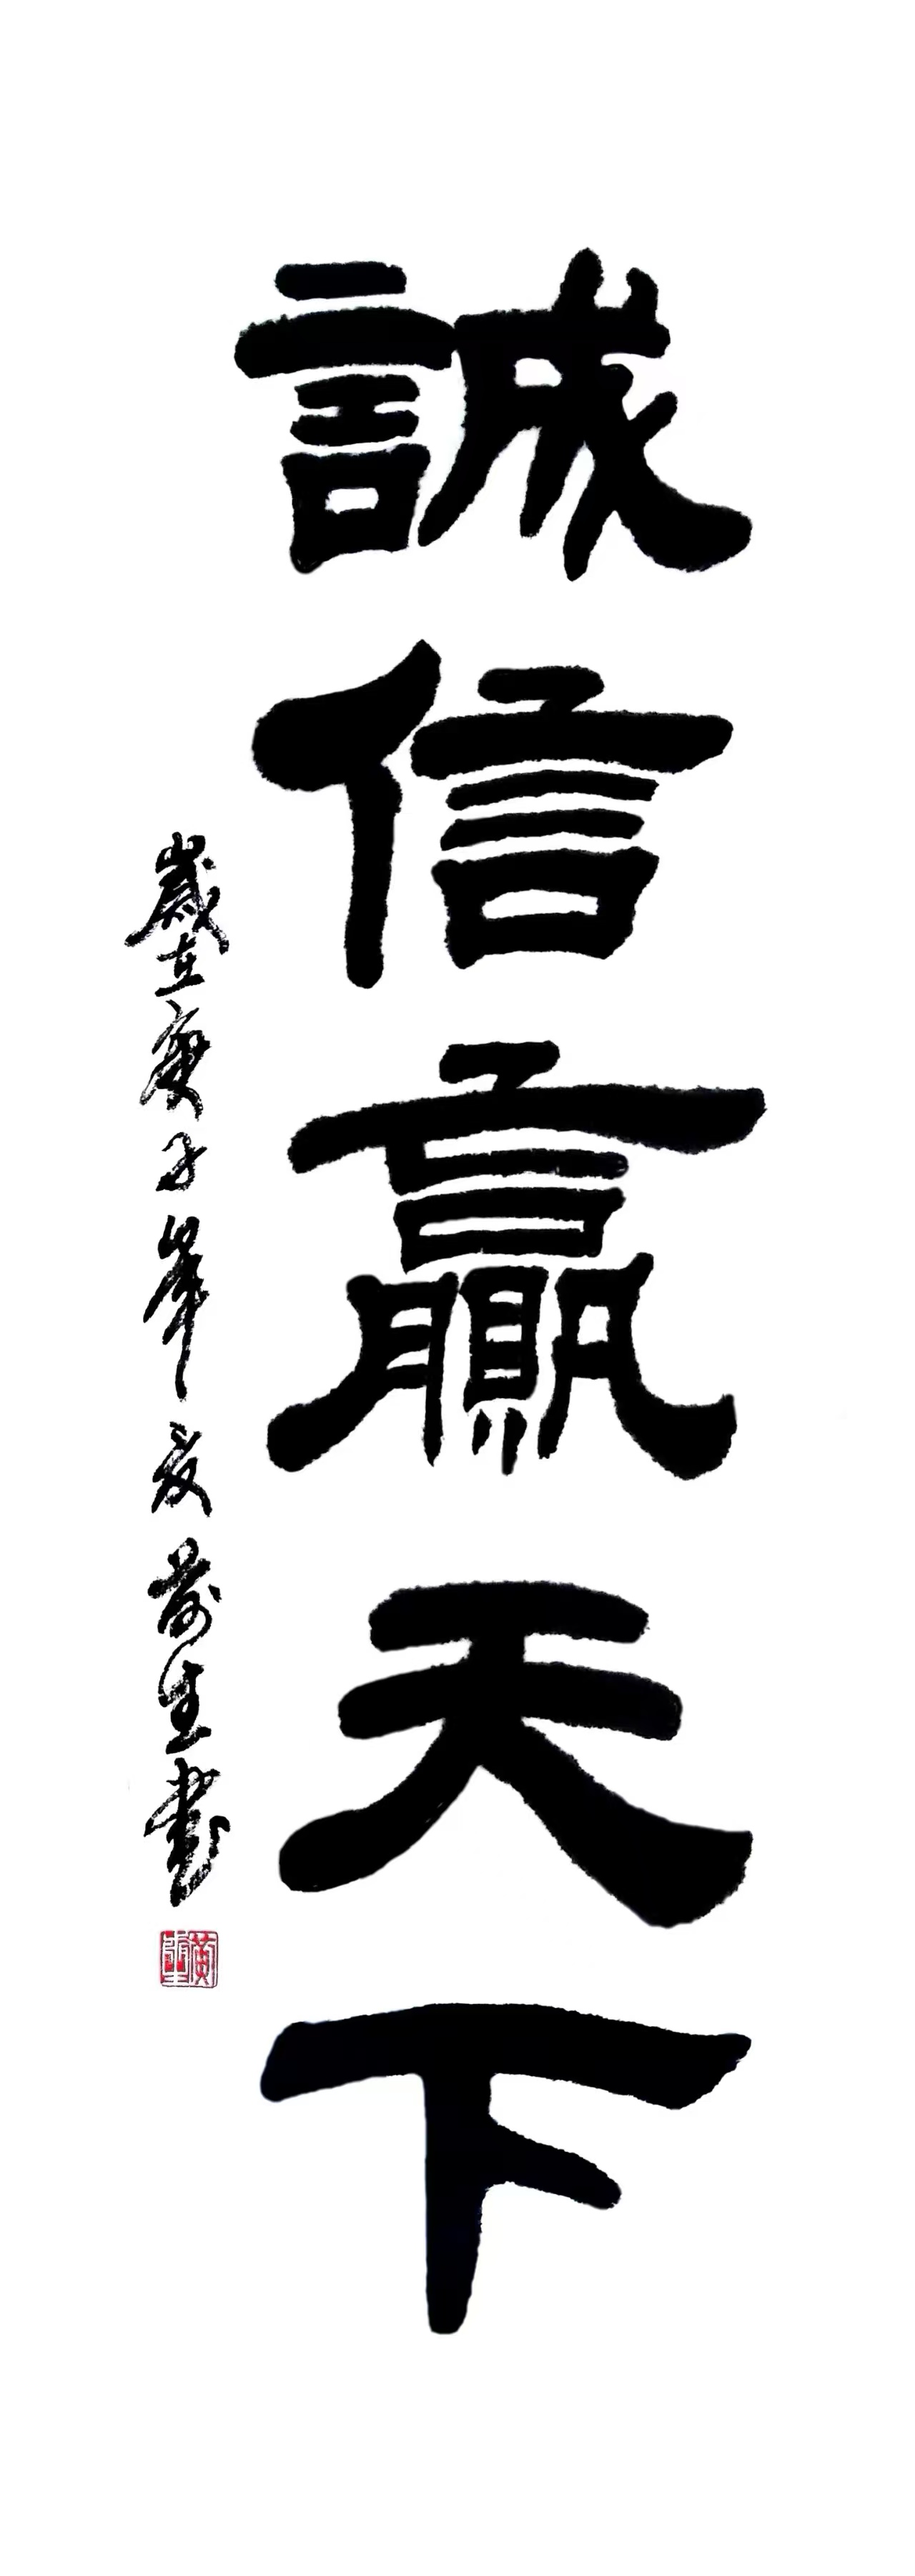 誠信贏天下
歲在庚子年夏前生書
黃